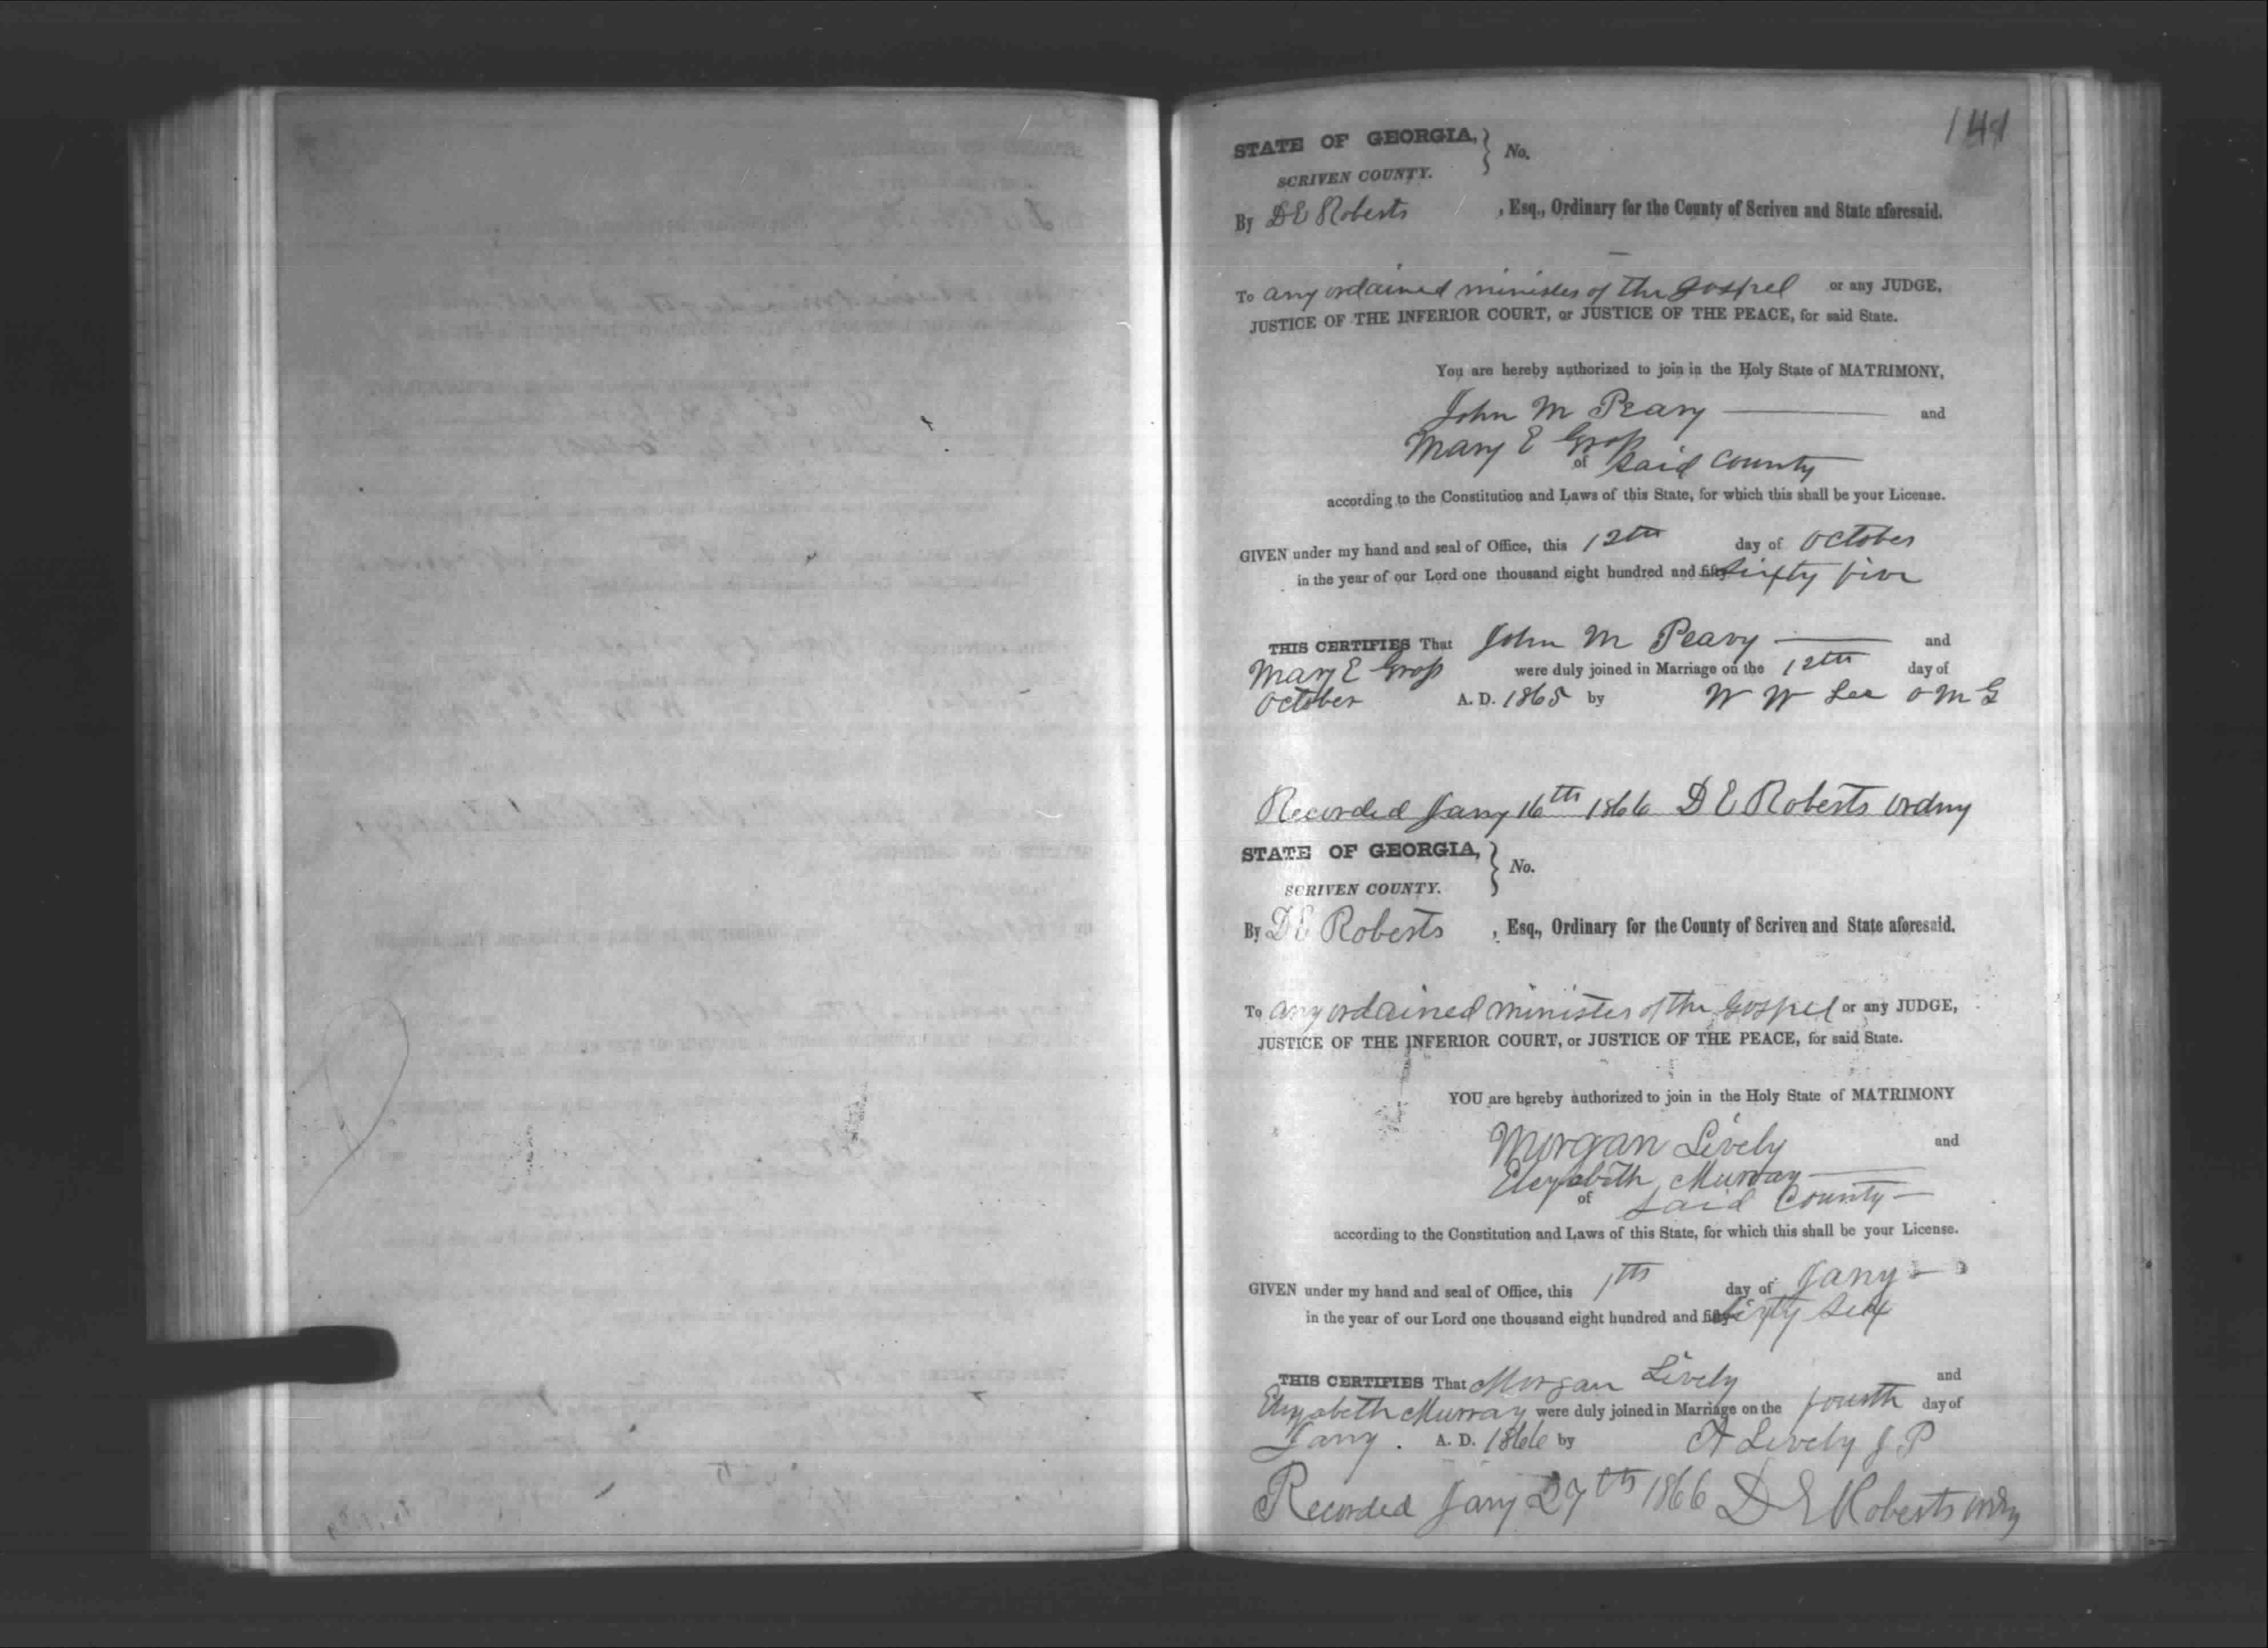 141
STATE OF GEORGIA, } No.
SCRIVEN COUNTY.
By D E Roberts , Esq., Ordinary for the County of Scriven and State aforesaid.
To any ordained minister of the Gospel or any JUDGE,
JUSTICE OF THE INFERIOR COURT, or JUSTICE OF THE PEACE, for said State.
You are hereby authorized to join in the Holy State of MATRIMONY,
John M Peavy and
Mary E Gross
of said county
according to the Constitution and Laws of this State, for which this shall be your License.
GIVEN under my hand and seal of Office, this 12th day of October
in the year of our Lord one thousand eight hundred and fifty sixty five
THIS CERTIFIES That John M Peavy and
Mary E Gross were duly joined in Marriage on the 12th day of
October A. D. 1865 by W W Lee O M G
Recorded Jany 16th 1866 D E Roberts Ordny
STATE OF GEORGIA, } No.
SCRIVEN COUNTY.
By D E Roberts , Esq., Ordinary for the County of Scriven and State aforesaid.
To any ordained minister of the Gospel or any JUDGE,
JUSTICE OF THE INFERIOR COURT, or JUSTICE OF THE PEACE, for said State.
YOU are hereby authorized to join in the Holy State of MATRIMONY
Morgan Lively and
Elizabeth Murray
of said County
according to the Constitution and Laws of this State, for which this shall be your License.
GIVEN under my hand and seal of Office, this 1th day of Jany
in the year of our Lord one thousand eight hundred and fifty sixty six
THIS CERTIFIES That Morgan Lively and
Elizabeth Murray were duly joined in Marriage on the fourth day of
Jany. A. D. 1866 by A Lively J P
Recorded Jany 27th 1866 D E Roberts Ordny